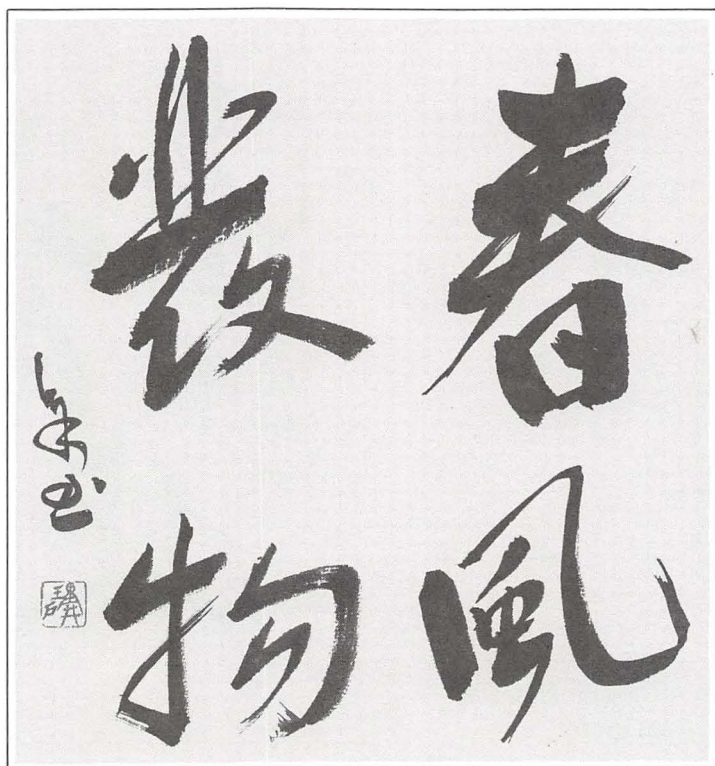 春風
發物